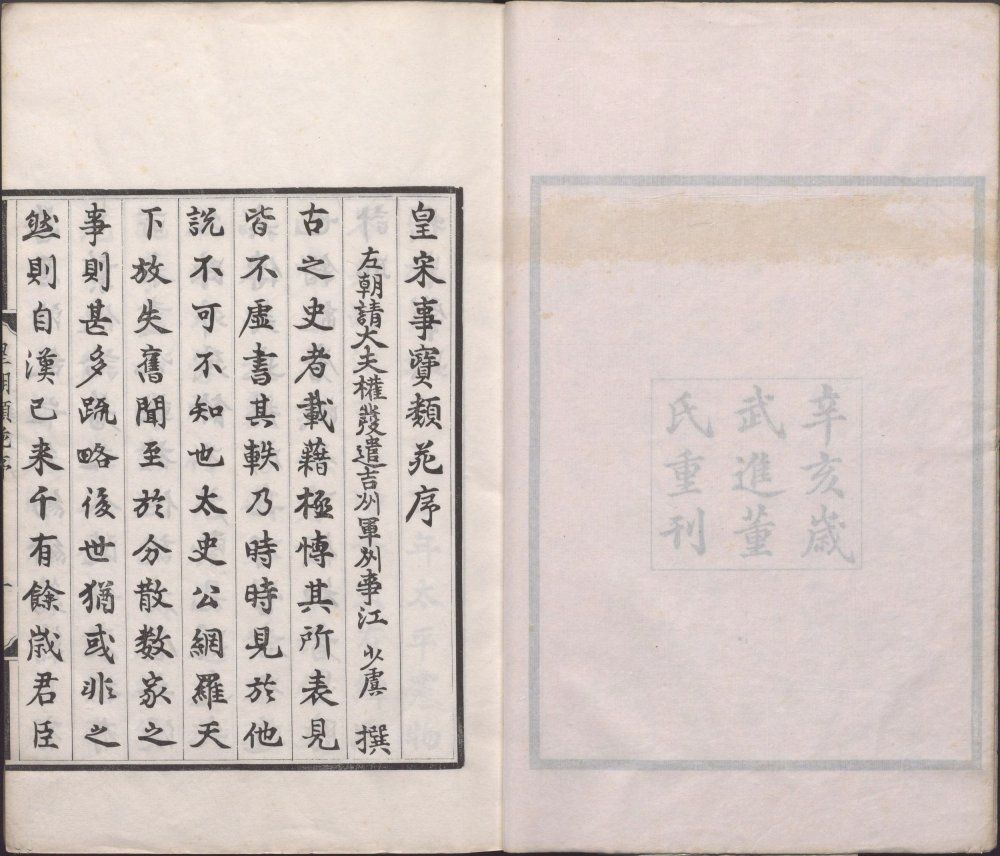 辛亥歲
武進董
氏重刊
皇宋事寶類苑序
左朝請大夫權發遣吉州軍州事江少虞撰
古之史者載藉極愽其所表見
皆不虛書其軼乃時時見於他
說不可不知也太史公網羅天
下放失舊聞至於分散数家之
事則甚多䟽略後世猶或非之
然則自漢已来千有餘歲君臣